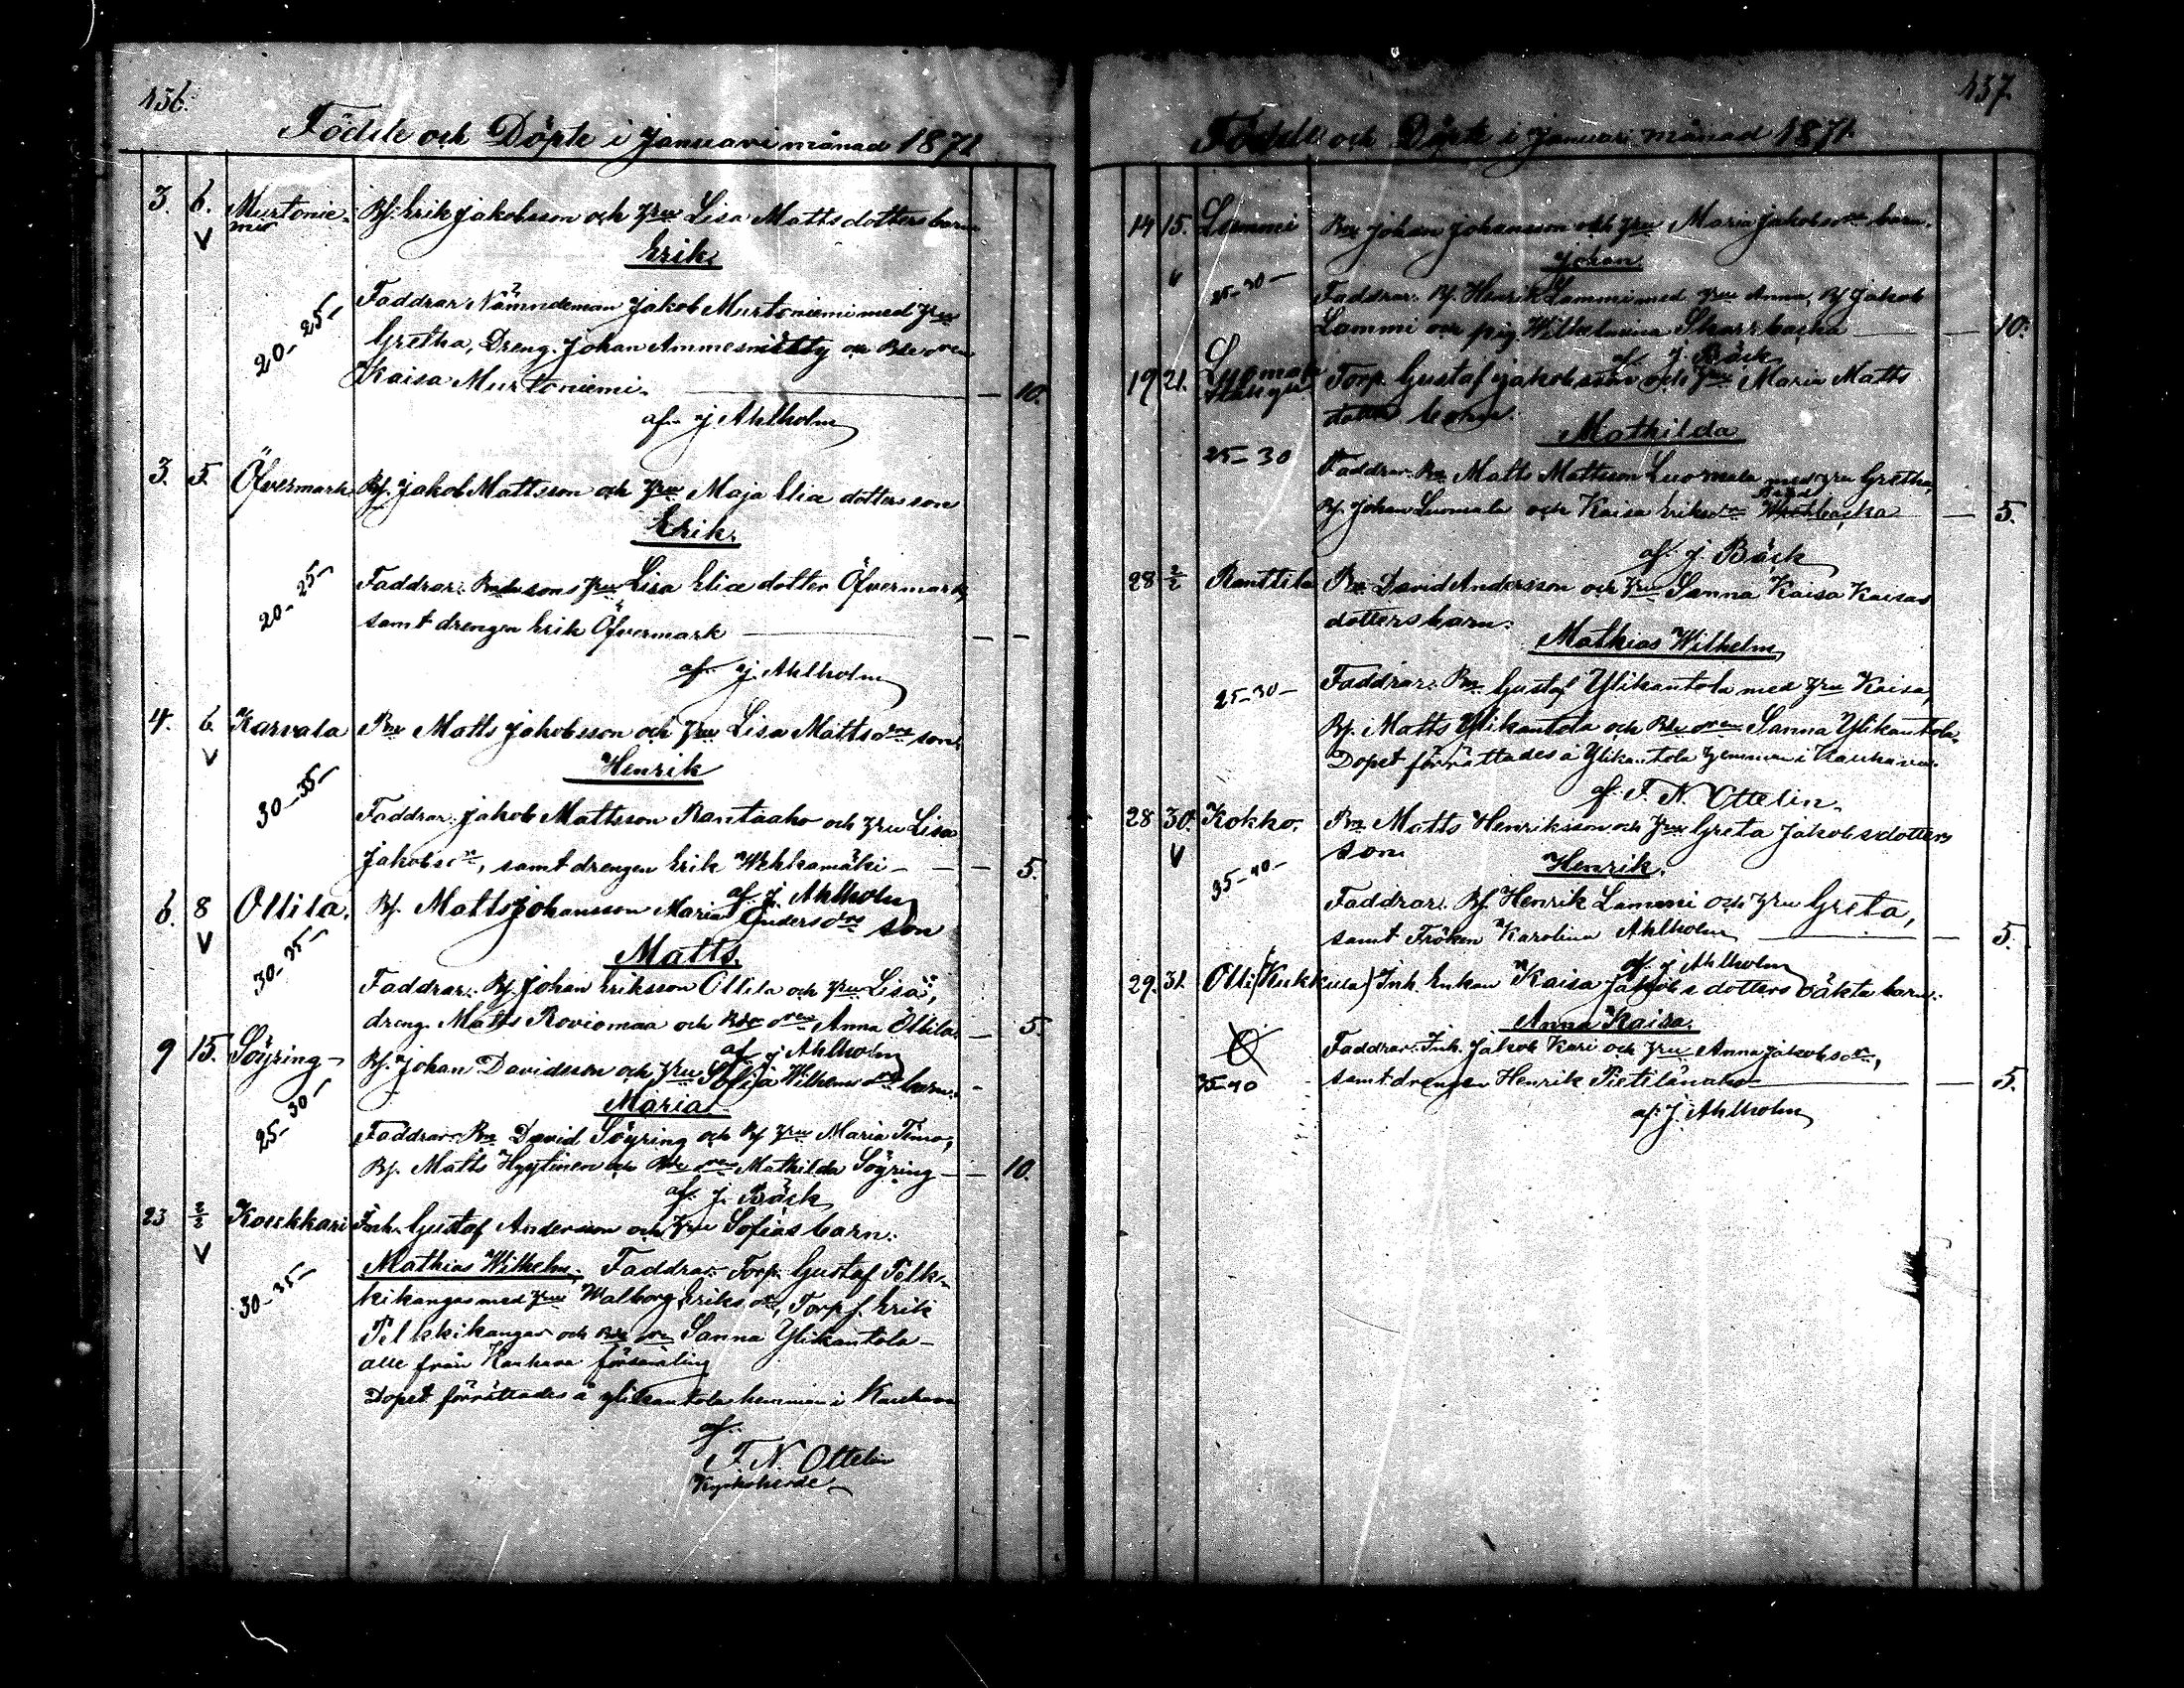 156.
Födde och Döpte i Januari månad 1871
3. 6. Murtonie-
mi
Bf. Erik Jakobsson och hru Lisa Mattsdotters barn
Erik.
20-25-
Faddrar: Nämndeman Jakob Murtoniemi med hru
Gretha, Dreng. Johan Ammesmitty och Bde dren
Kaisa Murtoniemi. — 10.
af J. Ahlholm
3. 5. Öfvermark Bf. Jakob Mattsson och hru Maja Eliæ dotters son
Erik.
20-25-
Faddrar: Bondesons hru Lisa Eliæ dotter Öfvermark,
samt drengen Erik Öfvermark — —
af J. Ahlholm
4. 6. Karvala Bn Matts Jakobsson och hru Lisa Mattsdrs son
V
Henrik
30-35-
Faddrar: Jakob Mattsson Rantaaho och hru Lisa
Jakobsdr, samt drengen Erik Wehkamäki — — 5.
af J. Ahlholm
6. 8 Ollila. Bf. Matts Johansson Maria Andersdrs son
V
Matts.
30-35-
Faddrar: Bf. Johan Eriksson Ollila och hru Lisa,
dreng. Matts Roviomaa och Bde dren Anna Ollila. — 5.
af J. Ahlholm
9 15. Söyring- Bf. Johan Davidsson och hru Sofija Wilhelmsdrs barn.
Maria.
25-30-
Faddrar: Bn David Söyring och Bf hru Maria Timo,
Bf. Matts Hyytinen och Bde dren Mathilda Söyring — 10.
af J. Bäck
23 2/2 Koukkari Inh. Gustaf Andersson och hru Sofias barn.
V
Mathias Wilhelm. Faddrar: Torp. Gustaf Pelk-
30-35-
kikangas med hru Walborg Eriksdr, Torpf. Erik
Pelkkikangas och Bde dr Sanna Ylikantola —
alle från Kauhava församling
Dopet förrättades å Ylikantola hemman i Kauhava
af
F. N. Ottelin
Kyrkoherde
157
Födde och Döpte i Januari månad 1871.
14 15. Lammi Bn Johan Johansson och hru Maria Jakobsdrs barn.
Johan
25-30-
Faddrar: Bf. Henrik Lammi med hru Anna, Bf Jakob
Lammi och pig. Wilhelmina Skarrbacka — 10.
af J. Bäck
19 21. Luomala Torp. Gustaf Jakobsson och hru Maria Matts
dotters barn.
Mathilda
25-30
Faddrar: Bn Matts Mattsson Luomala med hru Gretha,
Bf. Johan Luomala och Kaisa Eriksdr — 5.
af J. Bäck
28 2/2 Ranttila Bn David Andersson och hru Sanna Kaisa Kaisas
dotters barn.
Mathias Wilhelm
25-30-
Faddrar: Bn Gustaf Ylikantola med hru Kaisa,
Bf. Matts Ylikantola och Bde dren Sanna Ylikantola.
Dopet förrättades å Ylikantola hemman i Kauhava.
af F. N. Ottelin.
28 30. Kokko. Bn Matts Henriksson och hru Greta Jakobsdotters
V
son
Henrik.
35-40-
Faddrar: Bf Henrik Lammi och hru Greta,
samt Fröken Karolina Ahlholm — 5.
af J Ahlholm
29. 31. Olli (Kukkula) Inh. Enkan Kaisa Jakobs dotters oäkta barn.
Anna Kaisa.
Faddrar: Inh. Jakob Kari och hru Anna Jakobsdr,
35-40
samt drengen Henrik Pietilänaho — 5.
af J. Ahlholm